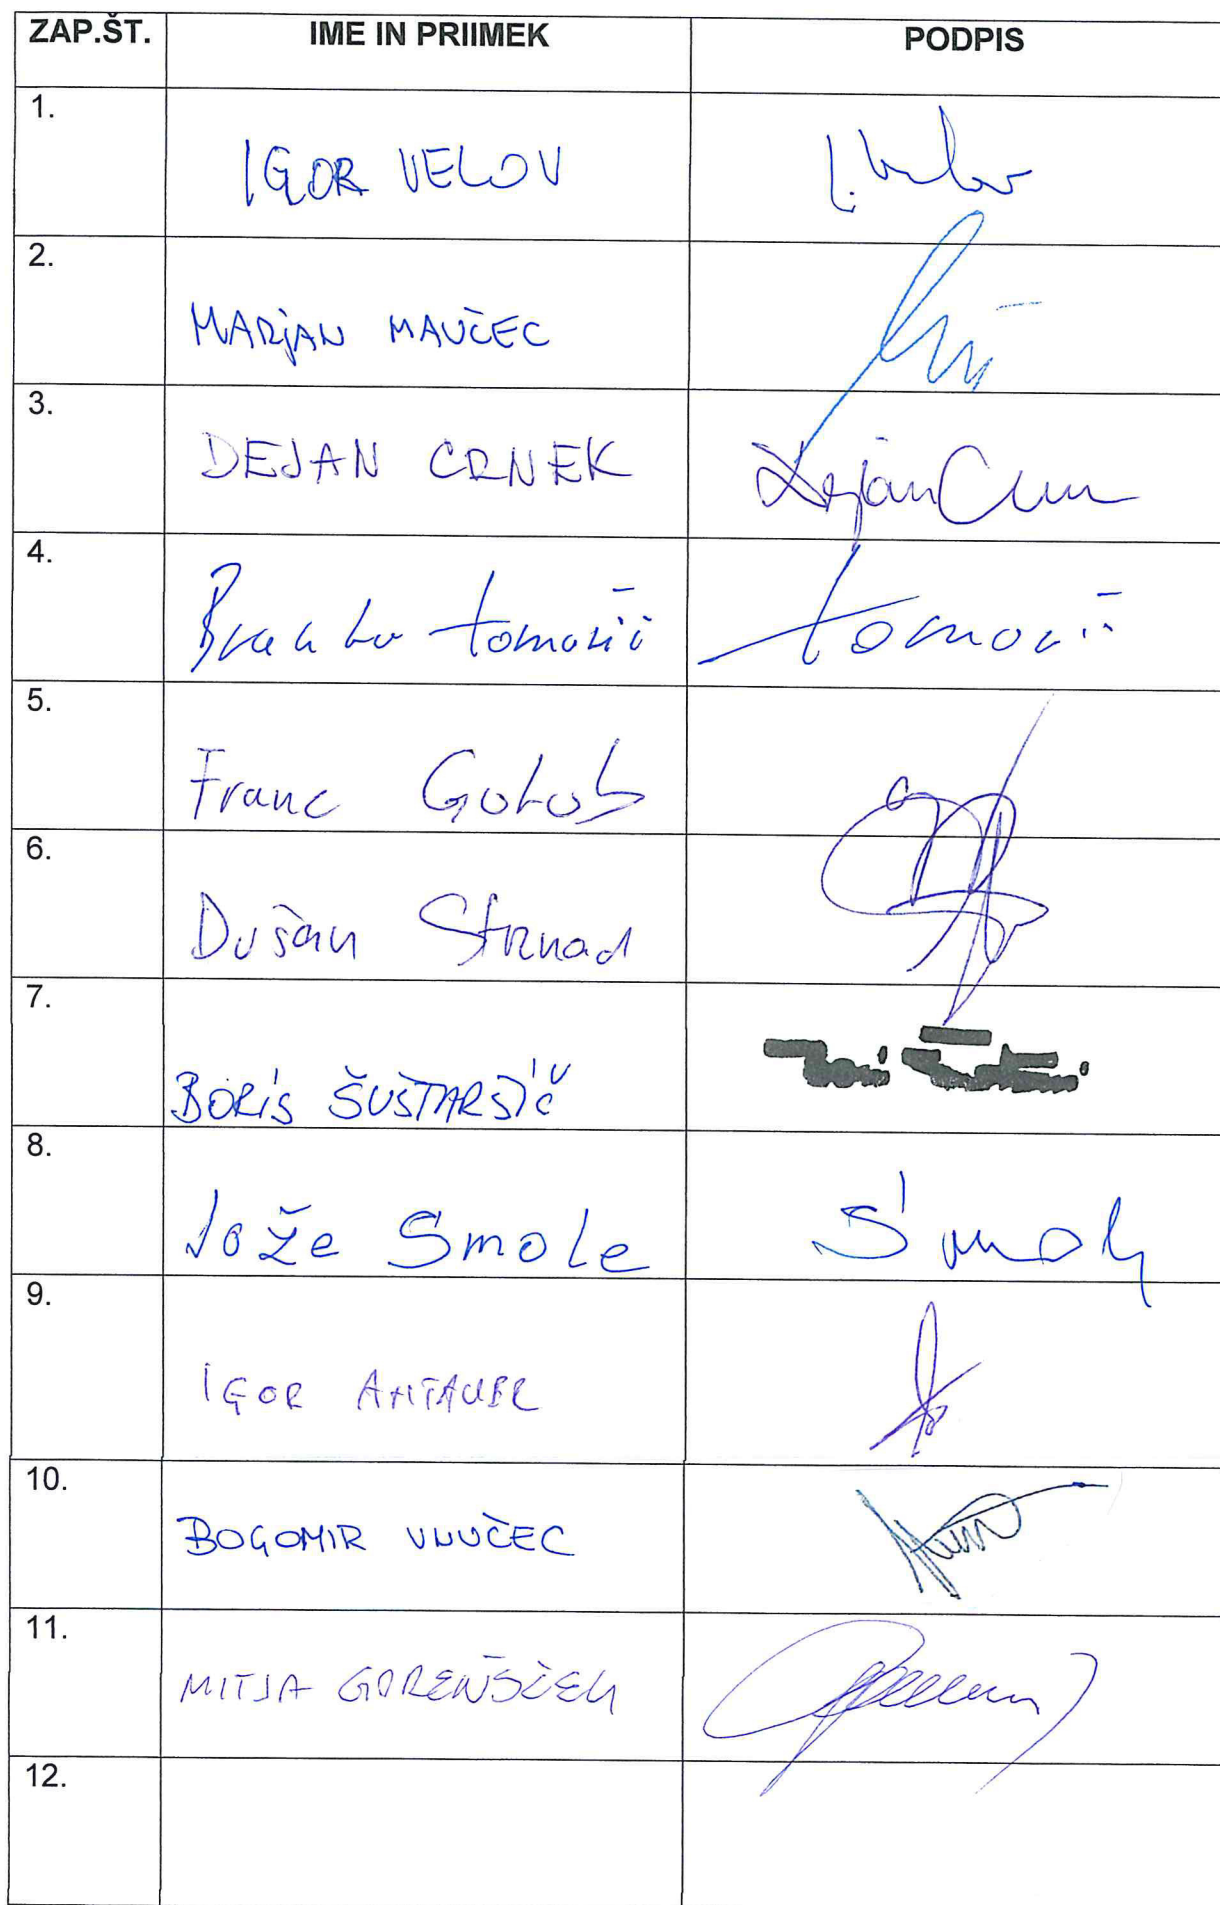 ZAP.ŠT. IME IN PRIIMEK PODPIS
1. IGOR VELOV I. Velov
2. MARJAN MAUČEC
3. DEJAN CRNEK Dejan Crn
4. Branko Tomažič Tomažič
5. Franc Golob
6. Dušan Strnad
7. BORIS ŠUŠTARŠIČ
8. Jože Smole Smole
9. IGOR
10. BOGOMIR VNUČEC
11. MITJA GORENŠČEK
12.